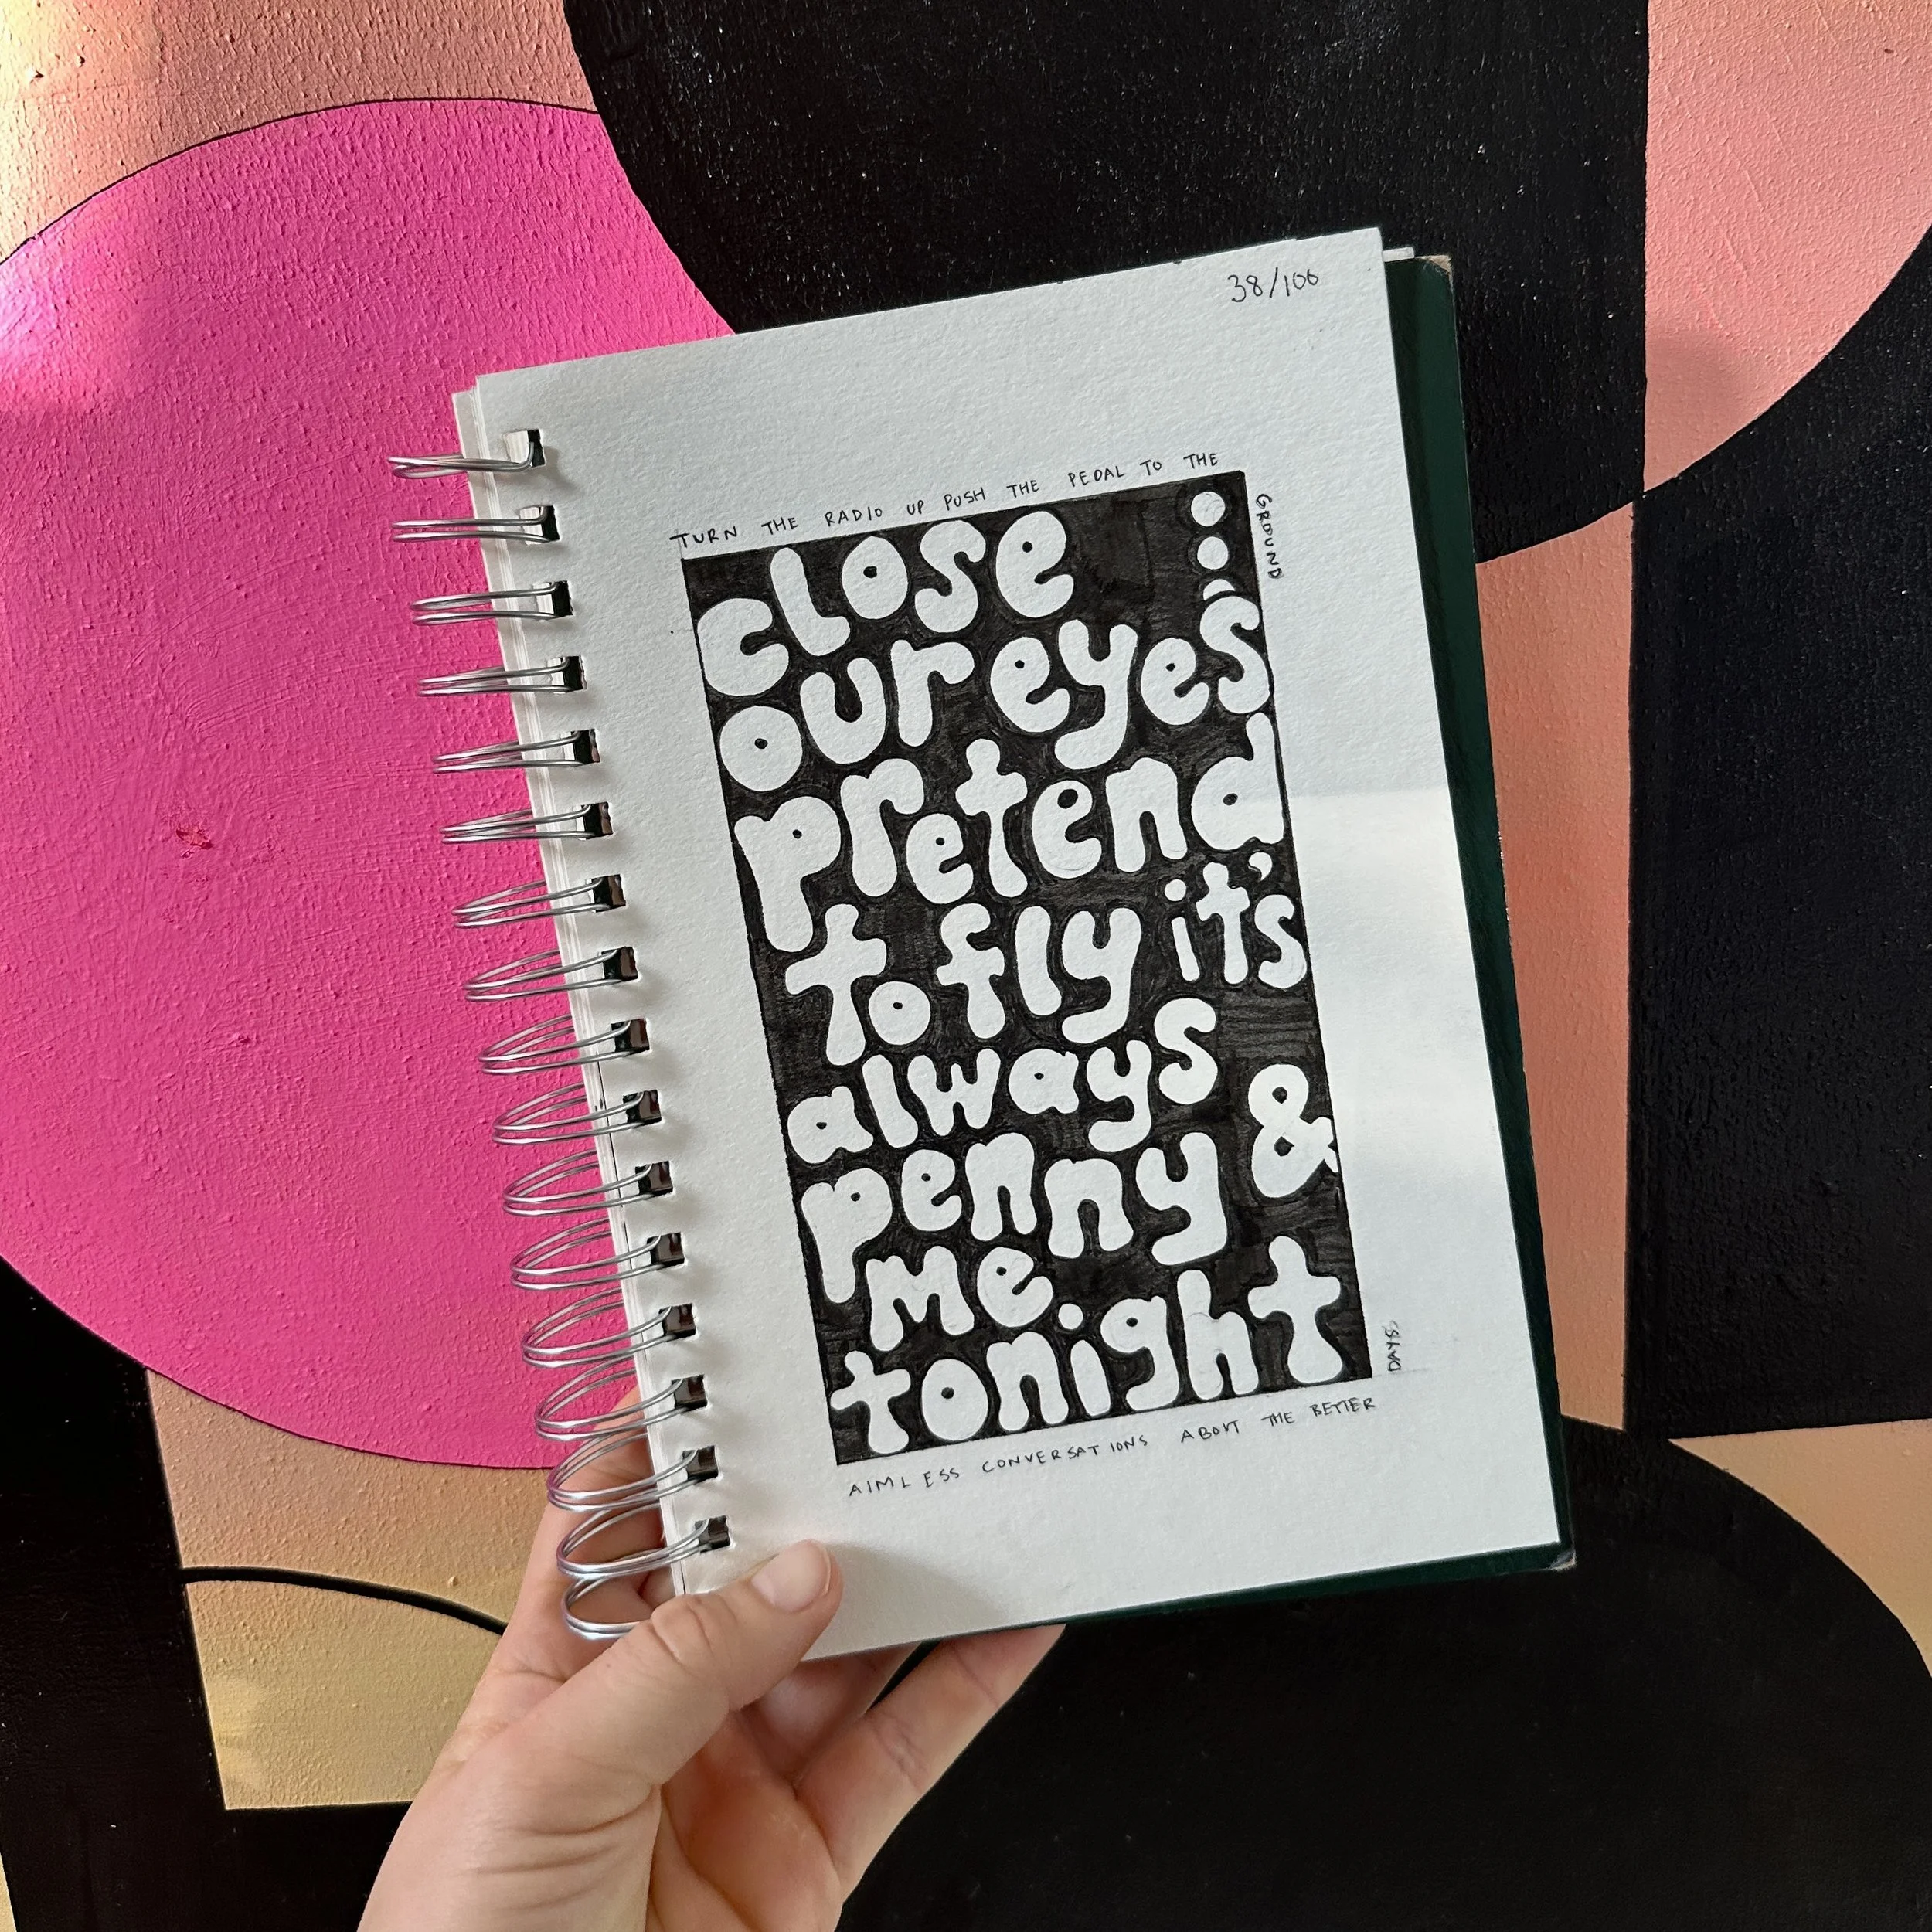 38/100
TURN THE RADIO UP PUSH THE PEDAL TO THE
GROUND
close
our eyes
pretend
to fly it's
always
penny &
me
tonight
AIMLESS CONVERSATIONS ABOUT THE BETTER
DAYS